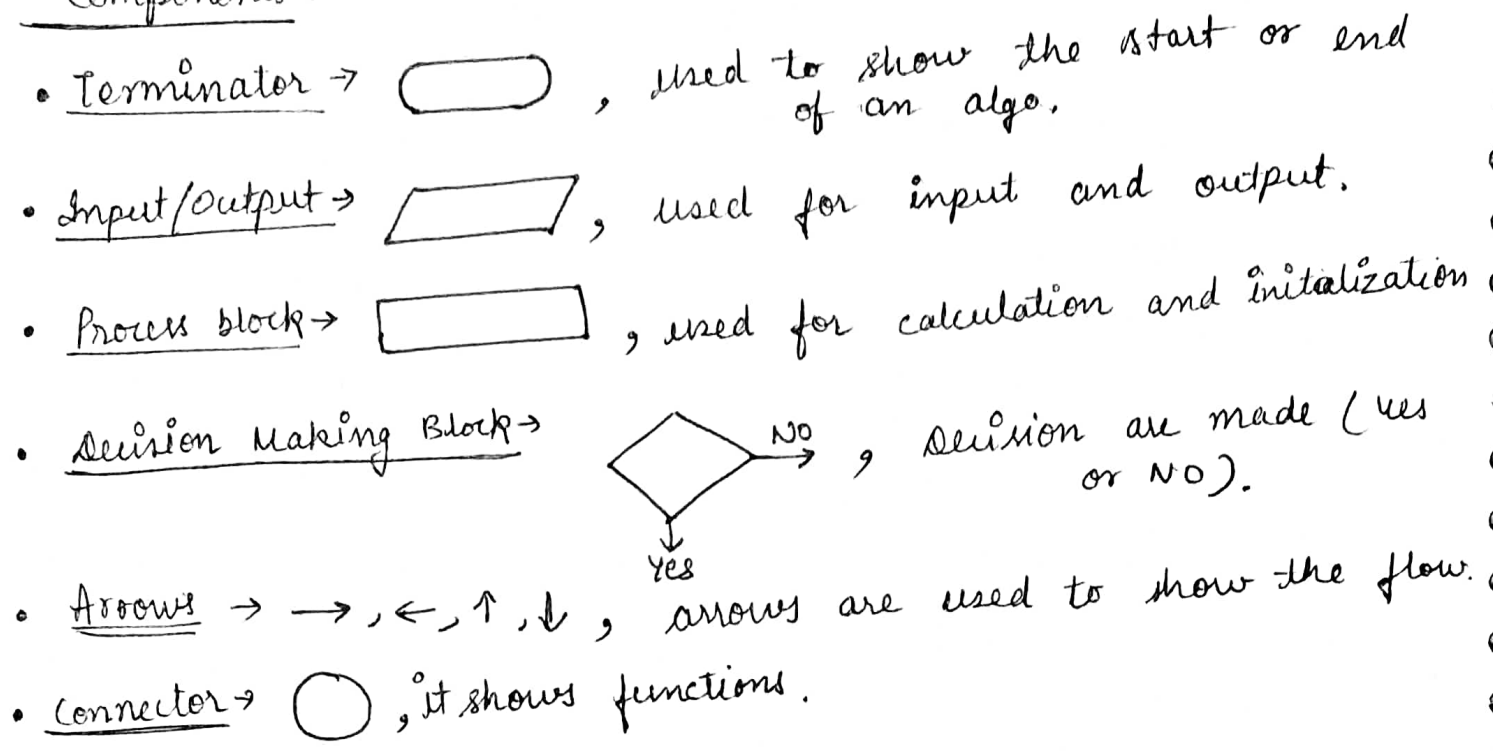 Components
• Terminator → , used to show the start or end
of an algo.
• Input/Output → , used for input and output.
• Process block → , used for calculation and initalization
• Decision Making Block → NO , Decision are made (yes
or NO).
Yes
• Arrows → →, ←, ↑, ↓, arrows are used to show the flow.
• Connector → , it shows functions.